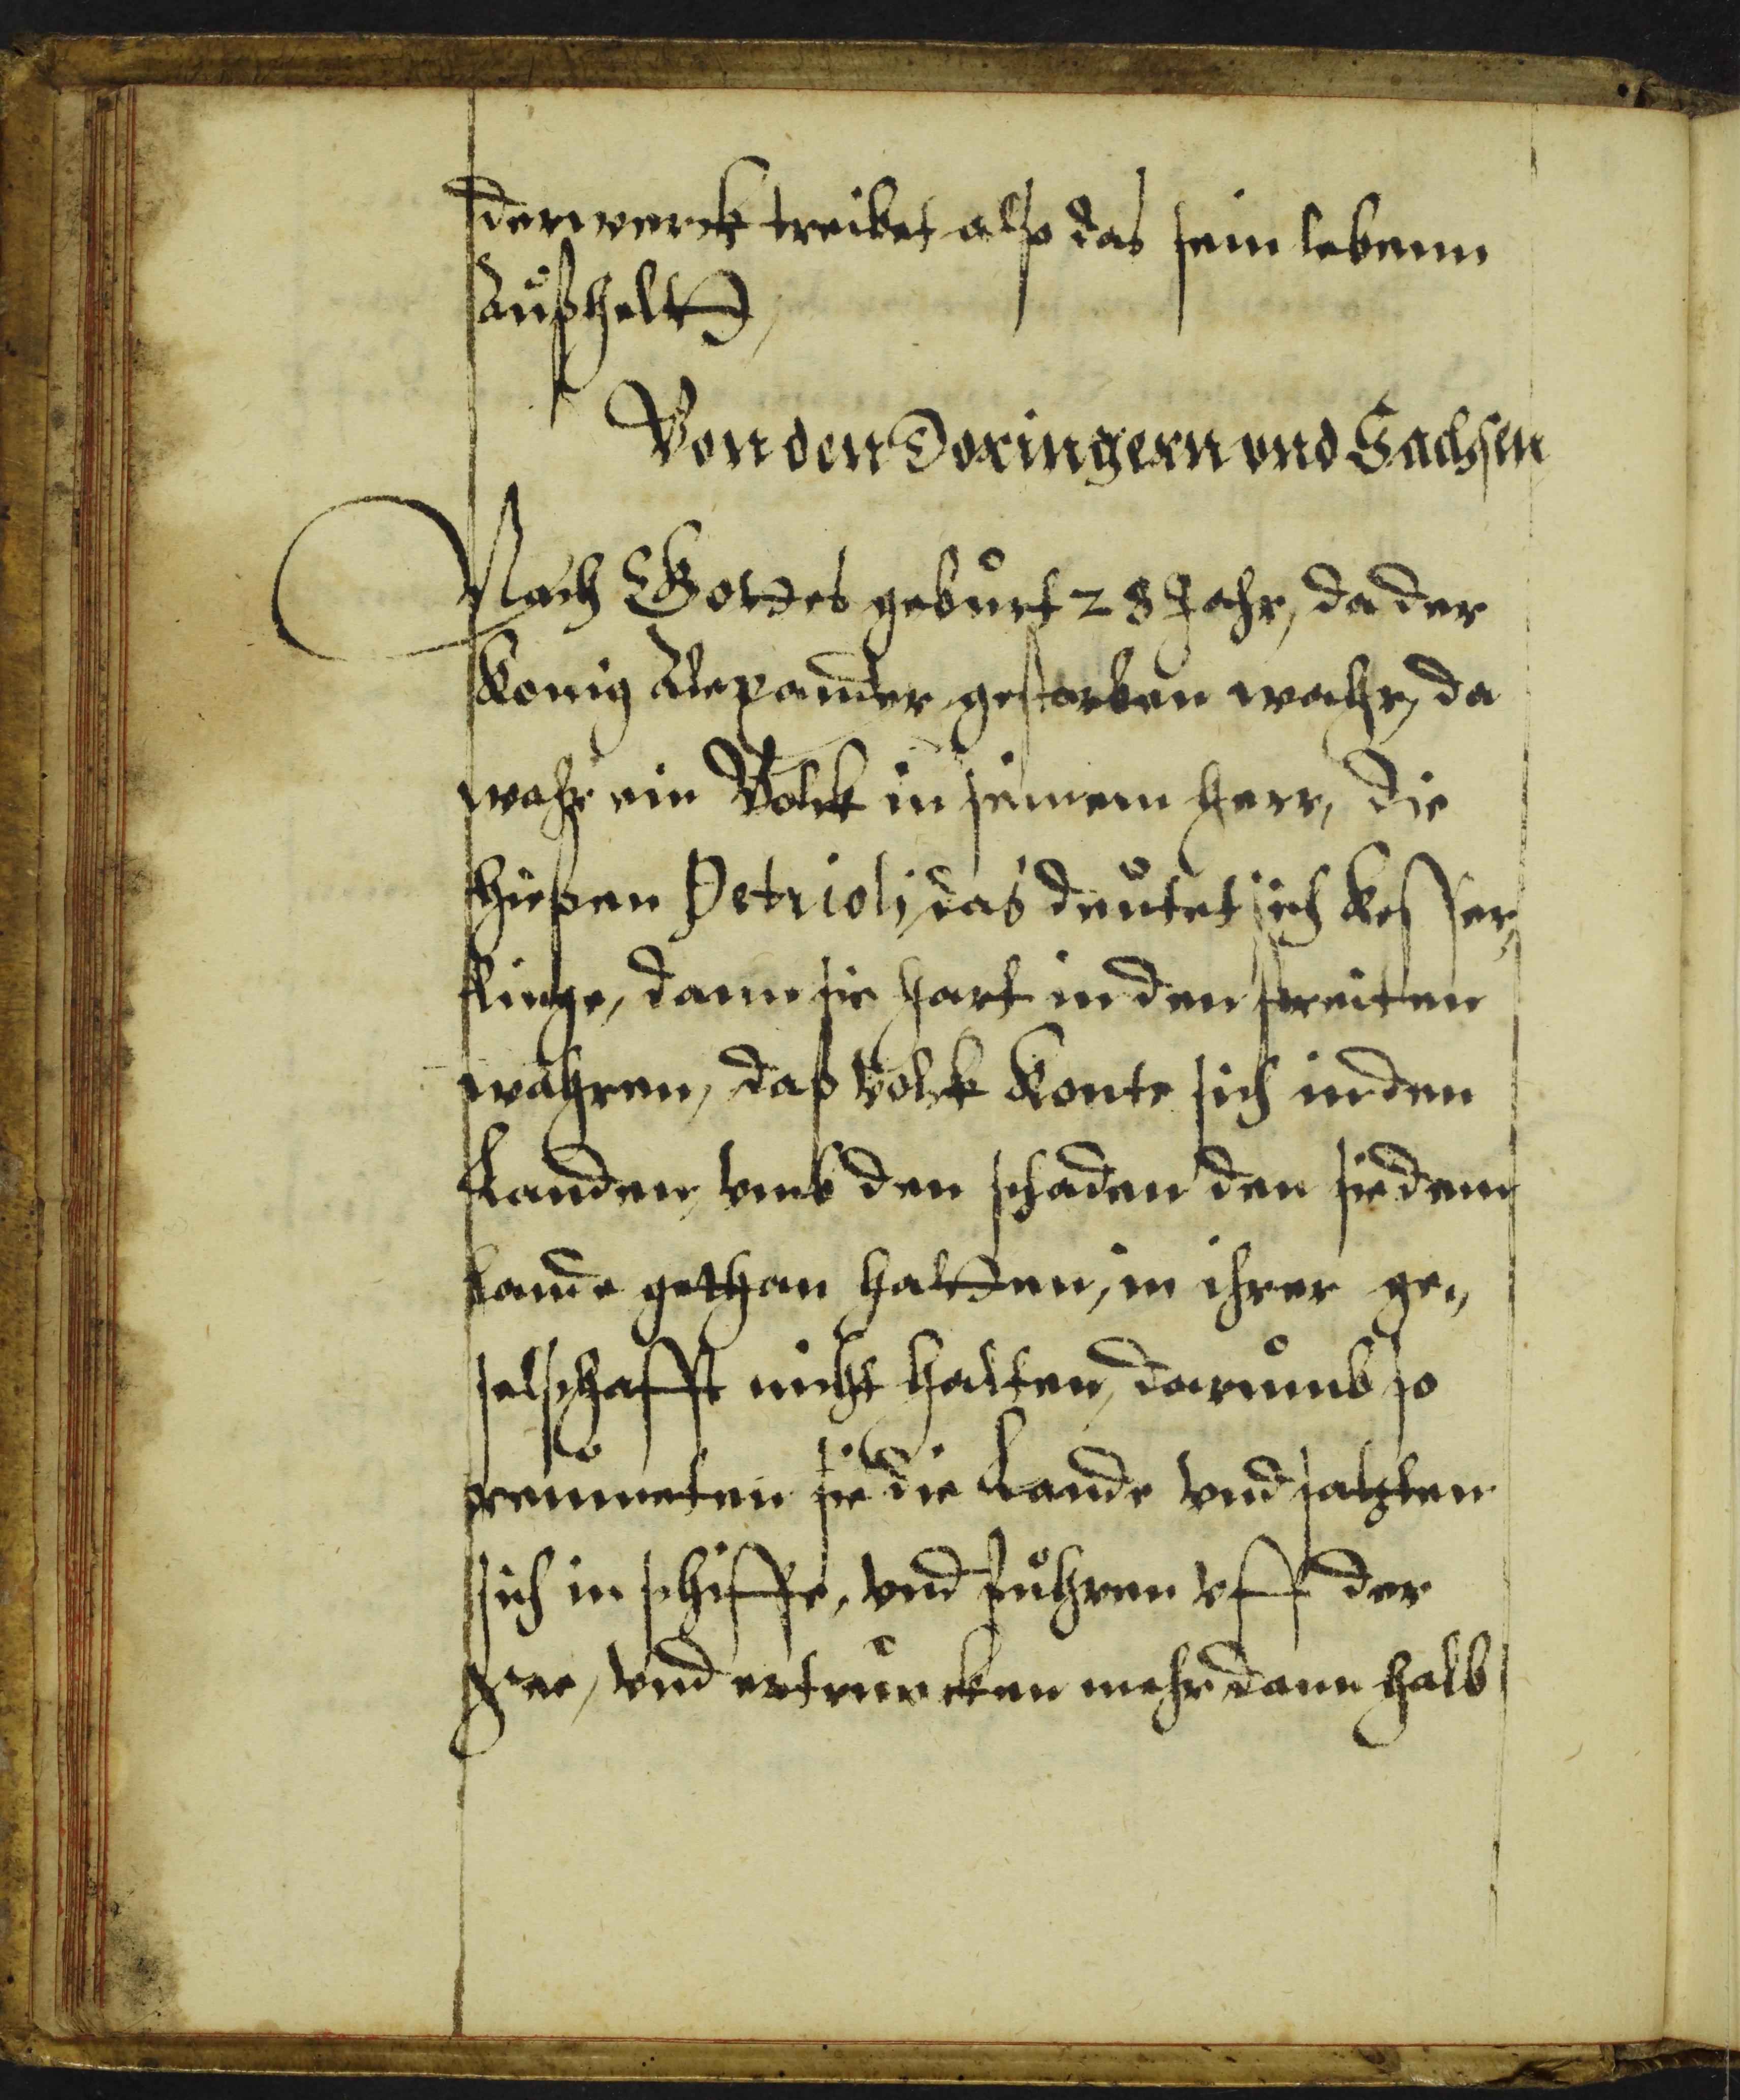 derwerck treibet also das sein lebenn
Außhelt
Von den Doringern vnd Sachsen
Nach Gottes geburt 28 Jahr, da der
Konig Alexander gestorben wahr, da
wahr ein Volck in seinem herr, die
hießen Petrioli, das deutet sich Kesser,
linge, dann sie hart in den streiten
wahren, daß Volck Konte sich in den
Landen, vmb den schaden den sie dem
Lande gethan hatten, in ihrer ge,
selschafft nicht halten, darumb so
reumeten sie die Lande vnd satzten
sich in schiffe, vnd fuhren vff der
See, vnd ertruncken mehr dann halb